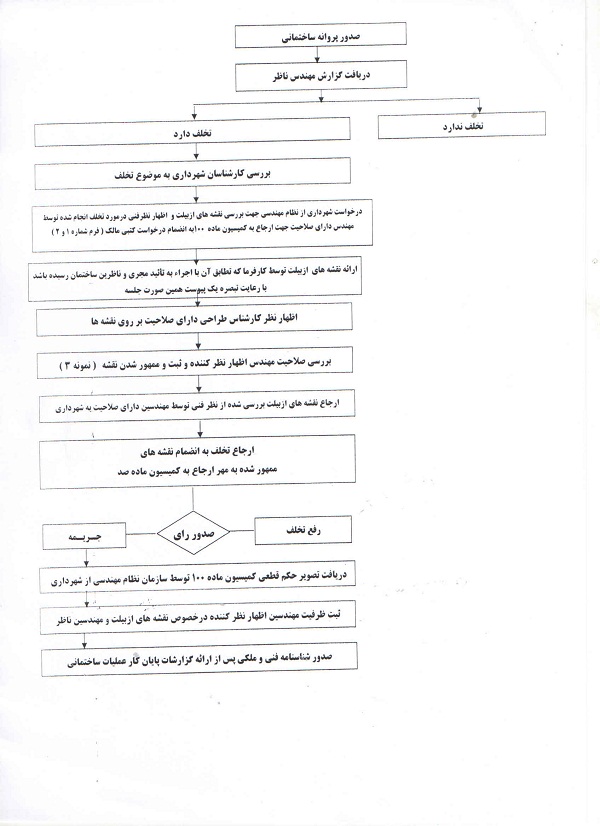 صدور پروانه ساختمانی
دریافت گزارش مهندس ناظر
تخلف ندارد
تخلف دارد
بررسی کارشناسان شهرداری به موضوع تخلف
درخواست شهرداری از نظام مهندسی جهت بررسی نقشه های ازبیلت و اظهار نظرفنی درمورد تخلف انجام شده توسط
مهندس دارای صلاحیت جهت ارجاع به کمیسیون ماده ۱۰۰به انضمام درخواست کتبی مالک ( فرم شماره ۱ و ۲ )
ارائه نقشه های ازبیلت توسط کارفرما که تطابق آن با اجراء به تائید مجری و ناظرین ساختمان رسیده باشد
با رعایت تبصره یک پیوست همین صورت جلسه
اظهار نظر کارشناس طراحی دارای صلاحیت بر روی نقشه ها
بررسی صلاحیت مهندس اظهار نظر کننده و ثبت و ممهور شدن نقشه ( نمونه ۳ )
ارجاع نقشه های ازبیلت بررسی شده از نظر فنی توسط مهندسین دارای صلاحیت به شهرداری
ارجاع تخلف به انضمام نقشه های
ممهور شده به مهر ارجاع به کمیسیون ماده صد
رفع تخلف
صدور رای
جریمه
دریافت تصویر حکم قطعی کمیسیون ماده ۱۰۰ توسط سازمان نظام مهندسی از شهرداری
ثبت ظرفیت مهندسین اظهار نظر کننده درخصوص نقشه های ازبیلت و مهندسین ناظر
صدور شناسنامه فنی و ملکی پس از ارائه گزارشات پایان کار عملیات ساختمانی